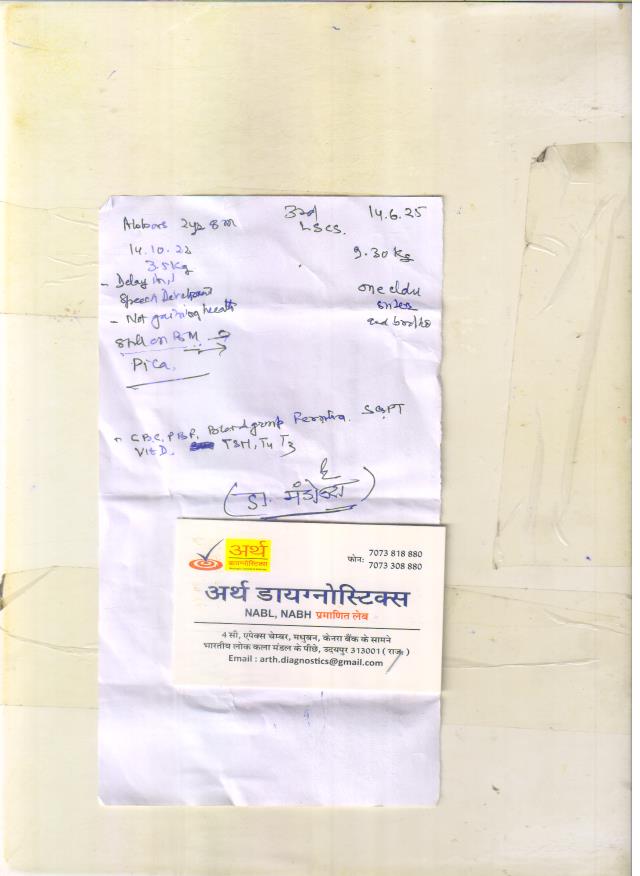 2yr 8m 3rd 14.6.25
LSCS.
14.10.22 9.30 Kg
3.5kg
- Delay in one elder
Speech Development sister
- Not gaining health and brother
still on BM
Pica,
CBC, PBF, Blood group Ferritin. SGPT
Vit D. TSH, T4 T3
(डा.
अर्थ
डायग्नोस्टिक्स
फोन: 7073 818 880
7073 308 880
अर्थ डायग्नोस्टिक्स
NABL, NABH प्रमाणित लेब
4 सी, एपेक्स चेम्बर, मधुबन, केनरा बैंक के सामने
भारतीय लोक कला मंडल के पीछे, उदयपुर 313001 ( राज. )
Email : arth.diagnostics@gmail.com